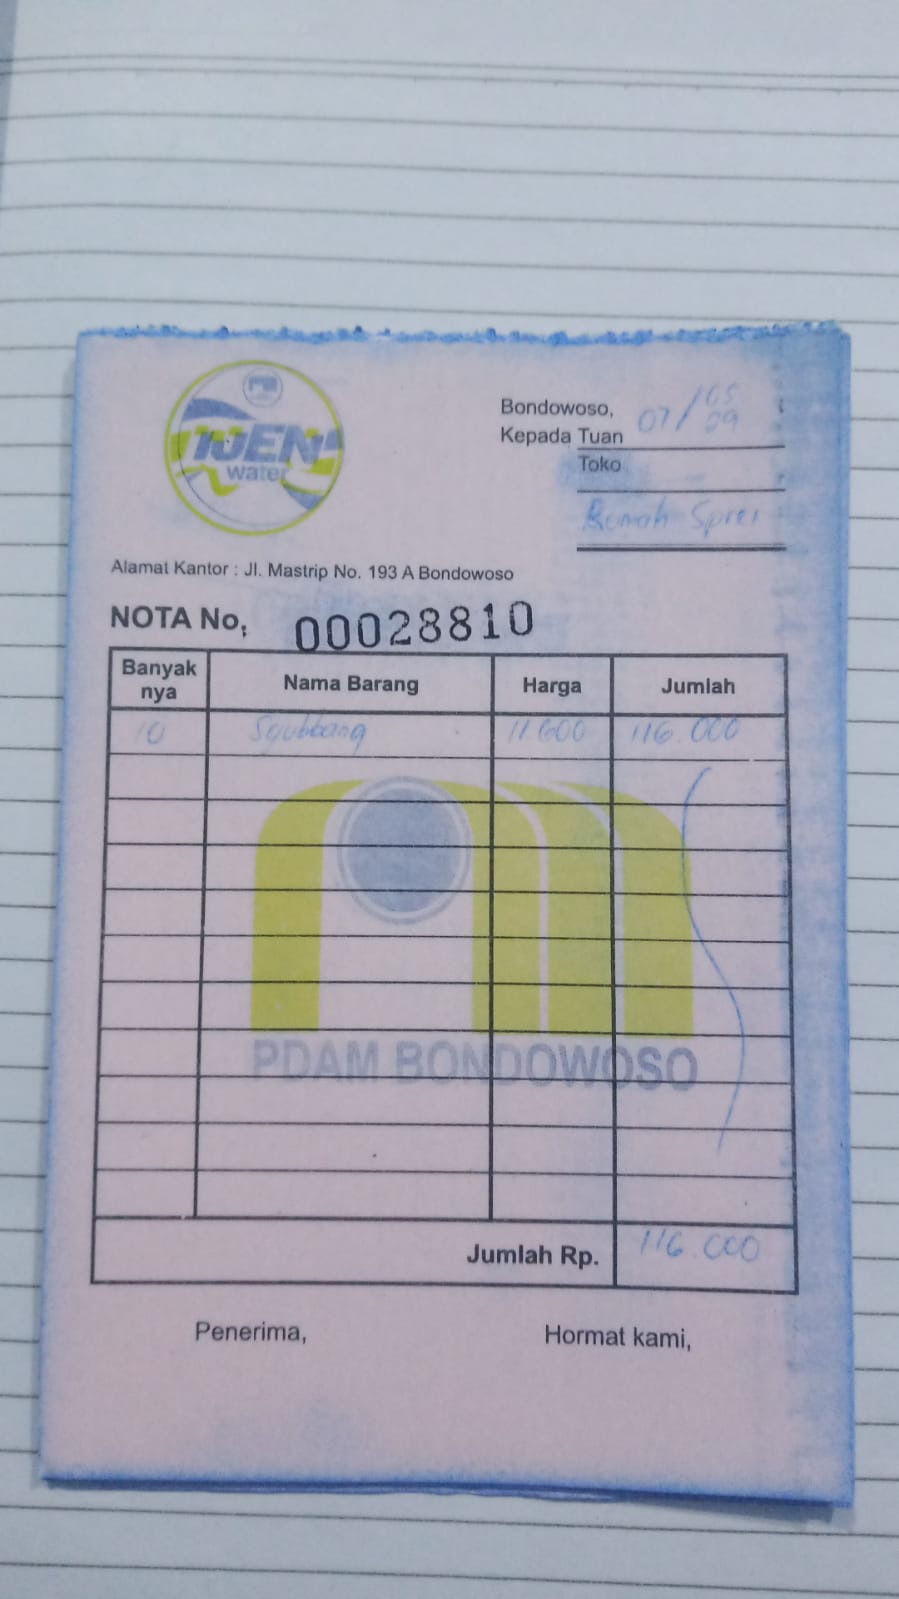 IJEN
water
Bondowoso, 07/05
Kepada Tuan
Toko
Rumah Sprei
Alamat Kantor : Jl. Mastrip No. 193 A Bondowoso
NOTA No, 00028810
Banyak nya Nama Barang Harga Jumlah
10 11.600 116.000
PDAM BONDOWOSO
Jumlah Rp. 116.000
Penerima, Hormat kami,